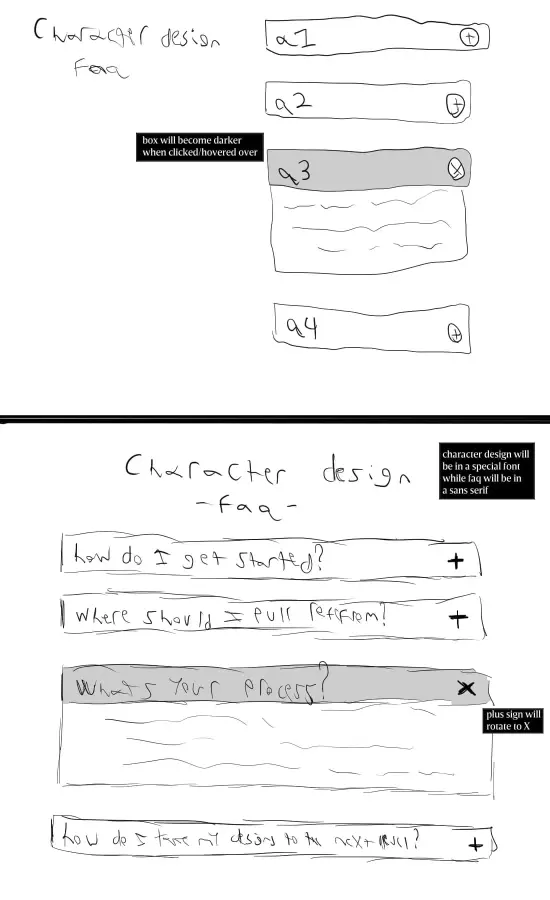 Character design
Faq
q1
+
q2
+
box will become darker
when clicked/hovered over
q3
X
q4
+
character design will
be in a special font
while faq will be in
a sans serif
Character design
-faq-
how do I get started?
+
Where should I pull ref from?
+
What's Your process?
X
plus sign will
rotate to X
how do I take my designs to the next level?
+